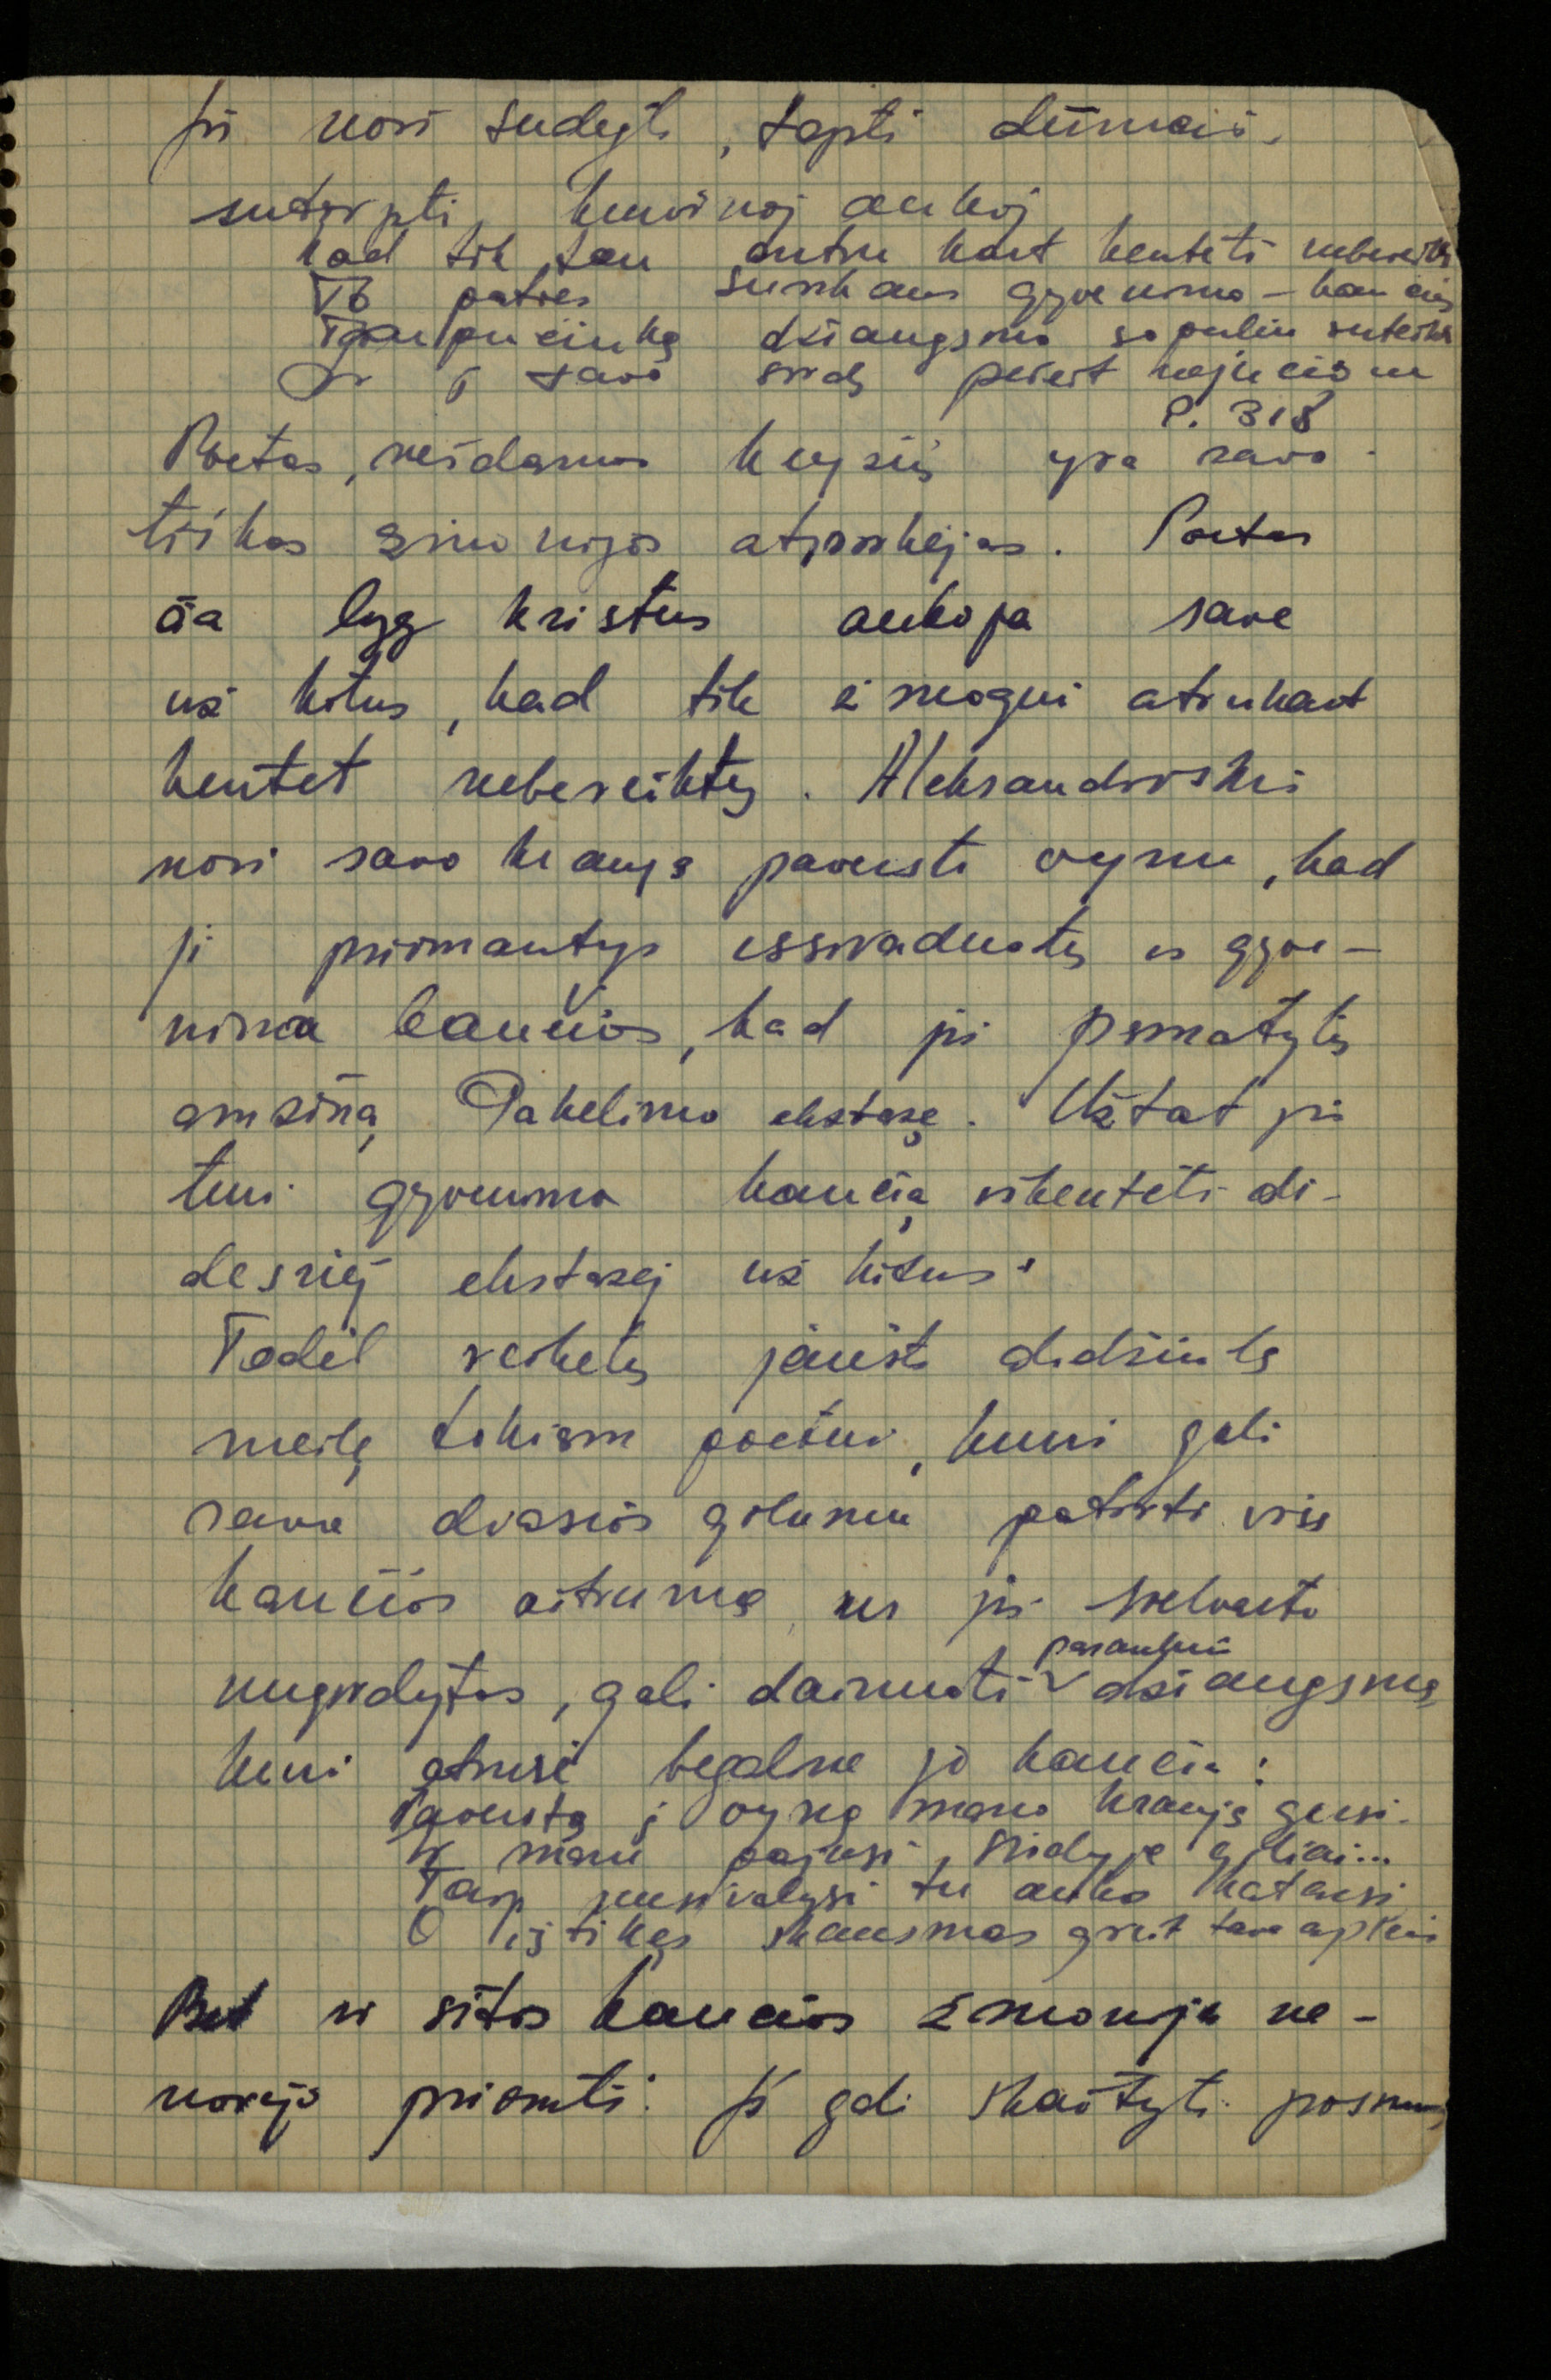 Jis nori sudegti, tapti dūmais,
sutirpti kurinoj aukoj
kad tik tau antru kart kentėti nebereiktų
To paties sunkaus gyvenimo – kančių
Tau pučiuką džiaugsmo sopuliu suteikia
Ir į tavo širdį pereit
P. 318
Poetas, rašdamas yra savo
tiškas žmonijos atpirkėjas. Poetas
čia lyg kristus aukoja save
už kitus, kad tik žmogui atrukart
kentet nebereiktų. Aleksandriškis
nori savo kraują paversti vynu, kad
jį priimantys išsivaduotų iš gyve-
nimo kančios, kad jis pamatytų
amžiną Pakelimo ekstazę. Užtat jis
turi gyvenimo kančią iškentėti di-
desnėj ekstazėj už kitus.
Todėl reikėtų jausti didžiulę
meilę tokiam poetui, kuris gali
savo dvasios gilumu patirti visą
kančios aitrumą, nes jis
nugirdytas, gali dainuoti pasauliui džiaugsmą,
kuri atnešė begalinė jo kančia:
Paverstą į vyną mano kraują gersi
Ir mane pajusi, širdyje giliai...
Tarp tu auka
O ištikęs skausmas greit tave apleis
Bet ir šitos kančios žmonija ne-
norėjo priimti. Ji gali skaityti posmus